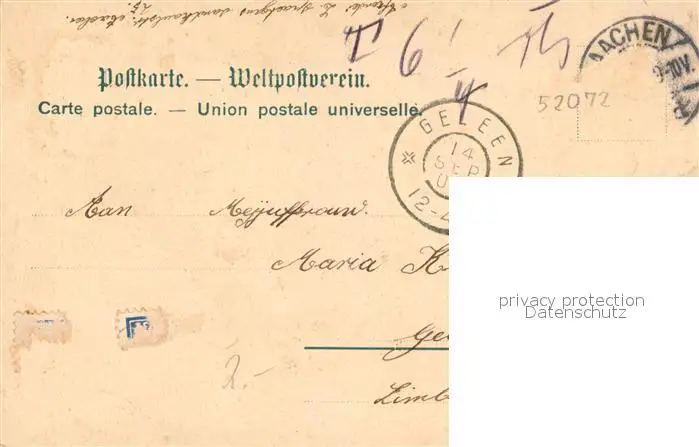 T 6! Th
AACHEN
9-10V.
Postkarte. — Weltpostverein.
Carte postale. — Union postale universelle.
52072
GELEEN
14
SEP
12-4
Aan Mejuffrouw.
Maria K
Ge
Limb
2.-
privacy protection
Datenschutz